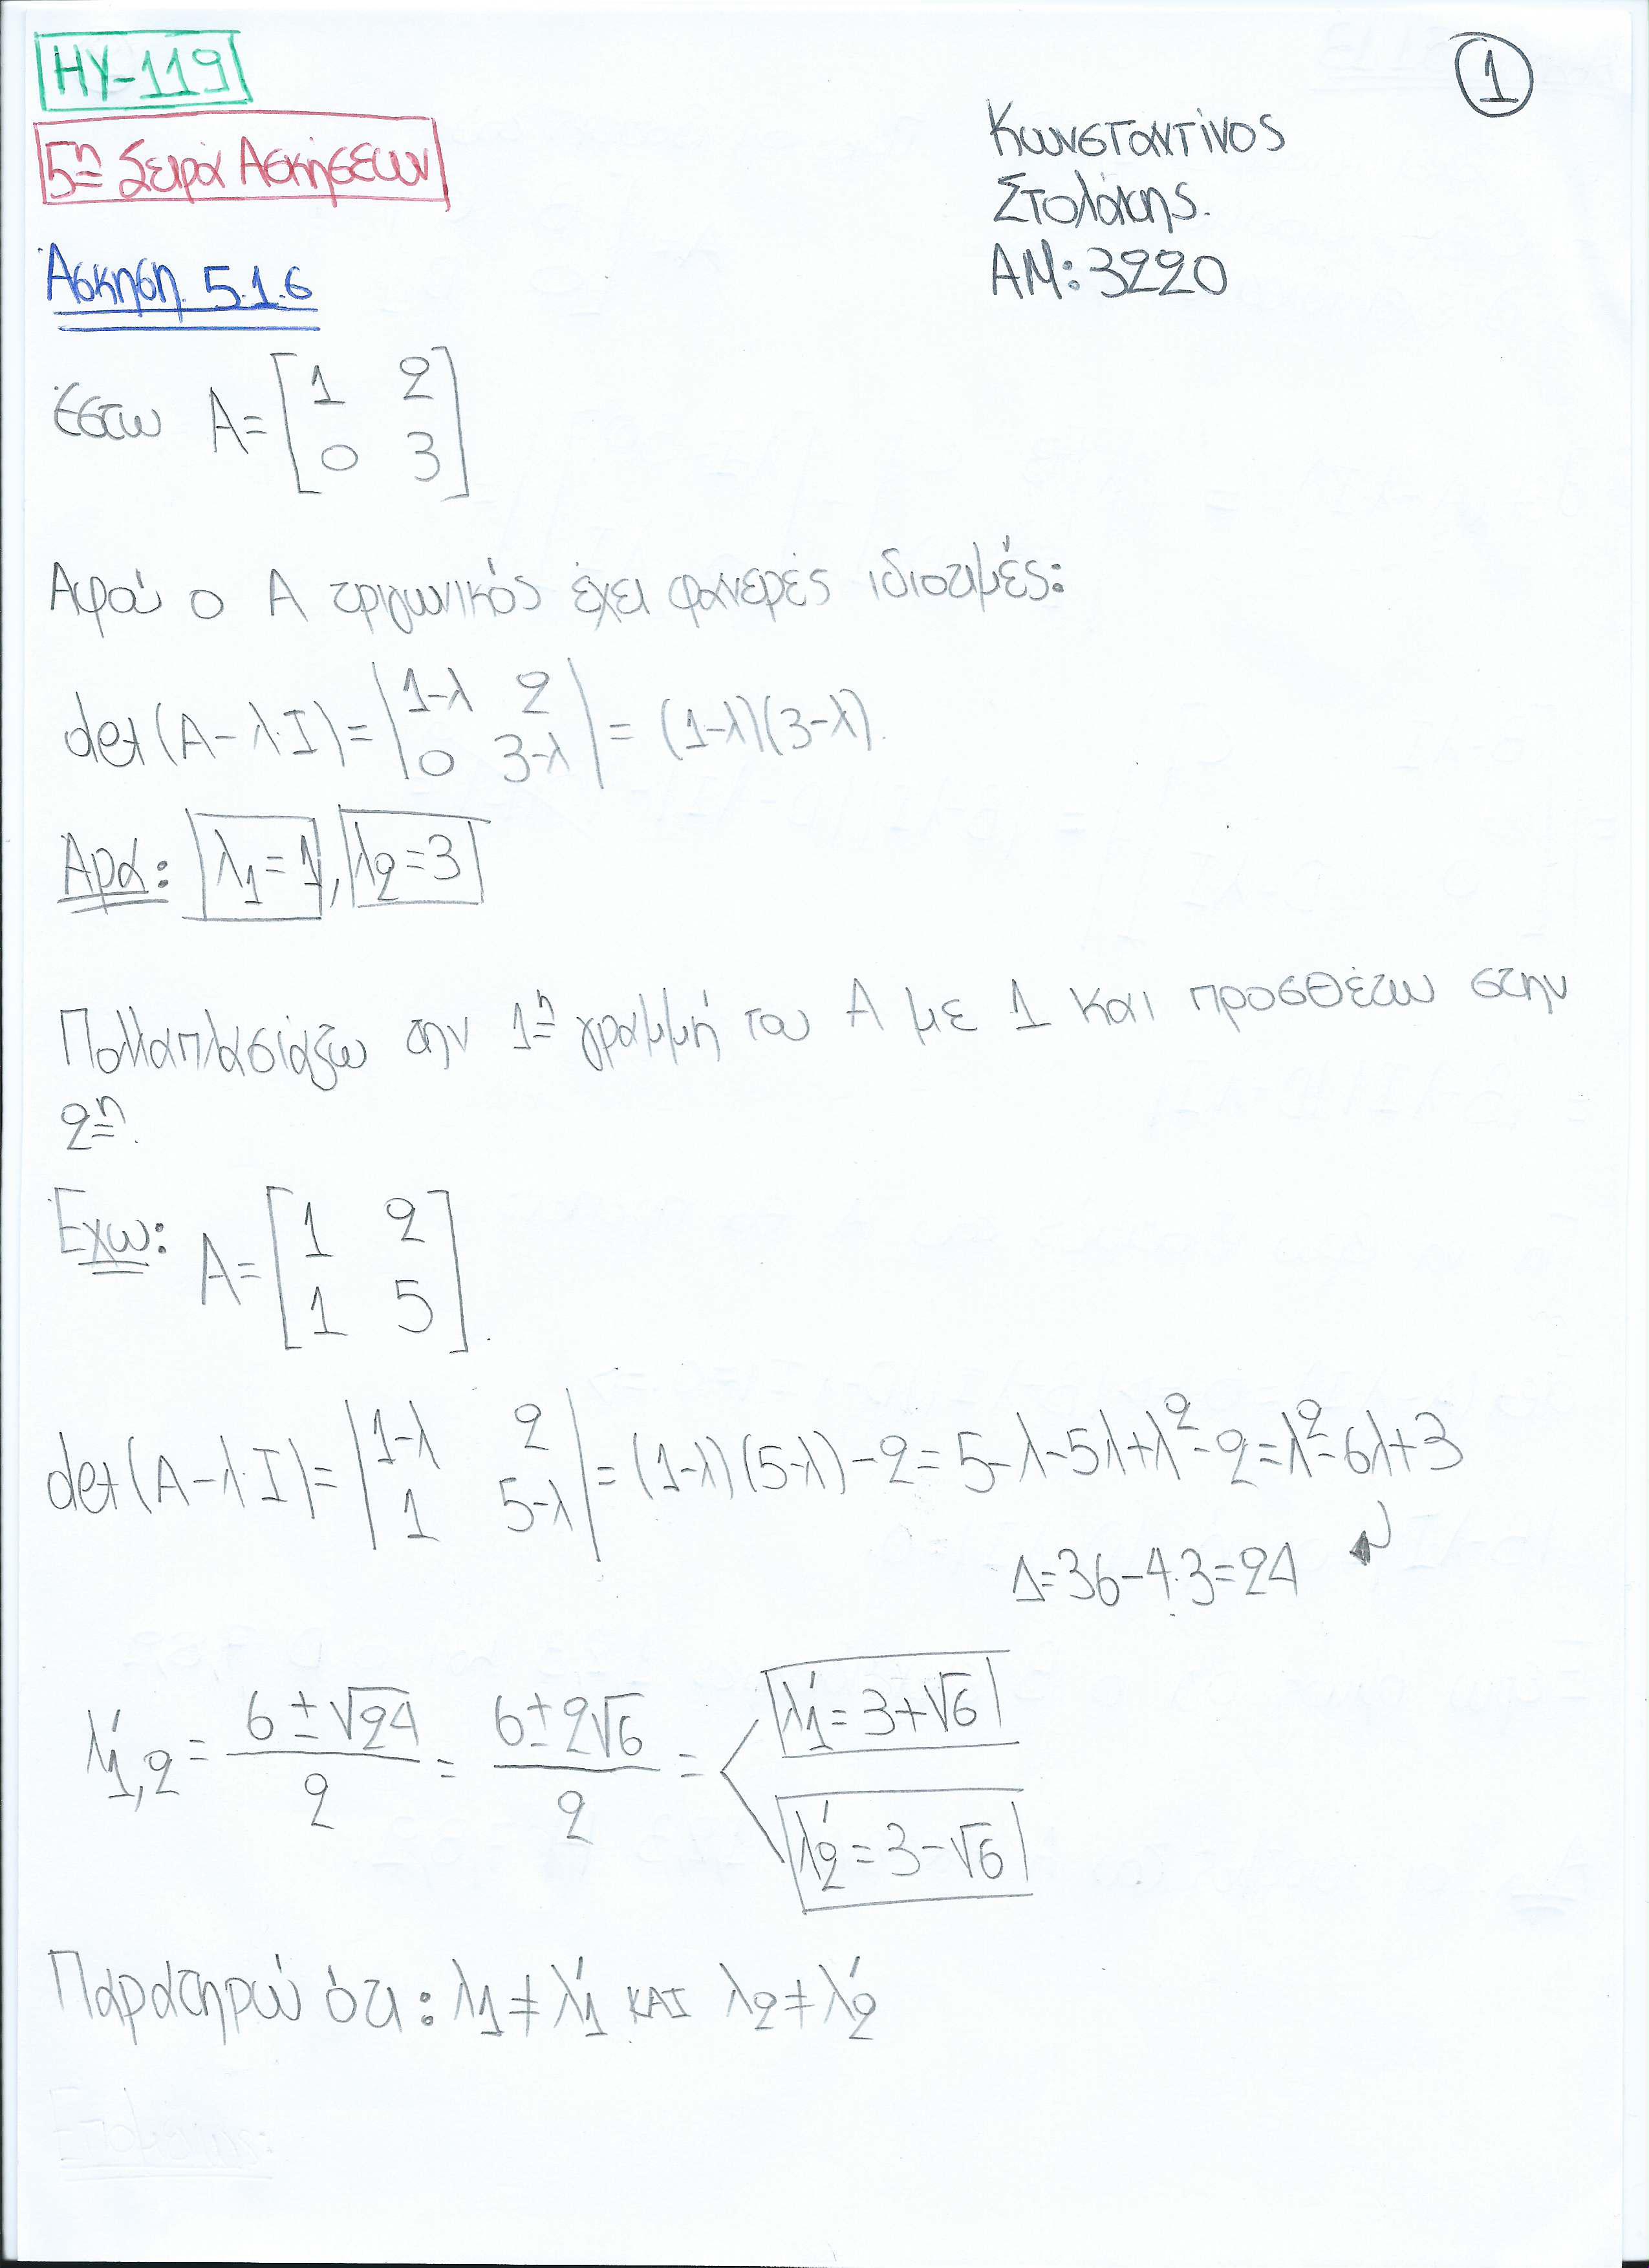 ①
ΗΥ-119
5η Σειρά Ασκήσεων
Κωνσταντίνος
Στολάκης.
ΑΜ: 3220
Άσκηση 5.1.6
Έστω A = [1 2
0 3]
Αφού ο A τριγωνικός έχει φανερές ιδιοτιμές:
det(A-λ·I) = |1-λ 2
0 3-λ| = (1-λ)(3-λ).
Άρα: λ1=1, λ2=3
Πολλαπλασιάζω την 1η γραμμή του A με 1 και προσθέτω στην
2η.
Έχω: A = [1 2
1 5].
det(A-λ·I) = |1-λ 2
1 5-λ| = (1-λ)(5-λ)-2 = 5-λ-5λ+λ²-2 = λ²-6λ+3
Δ=36-4·3=24
λ'1,2 = (6±√24)/2 = (6±2√6)/2 = < λ'1=3+√6
λ'2=3-√6
Παρατηρώ ότι: λ1≠λ'1 ΚΑΙ λ2≠λ'2